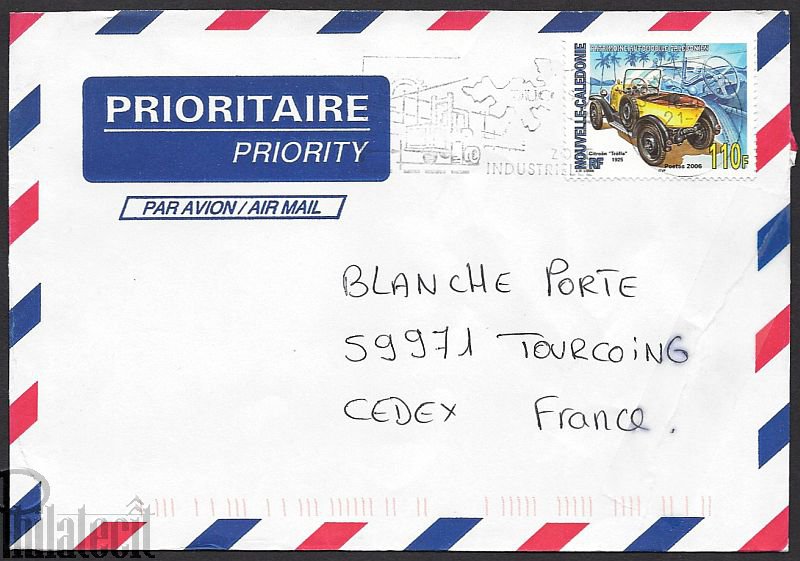 PRIORITAIRE
PRIORITY
PAR AVION / AIR MAIL
INDUSTRIELLE
PATRIMOINE AUTOMOBILE CALÉDONIEN
NOUVELLE-CALÉDONIE
21
Citroën "Trèfle"
1925
RF
Postes 2006
110F
BLANCHE PORTE
59971 TOURCOING
CEDEX France.
Philatecit